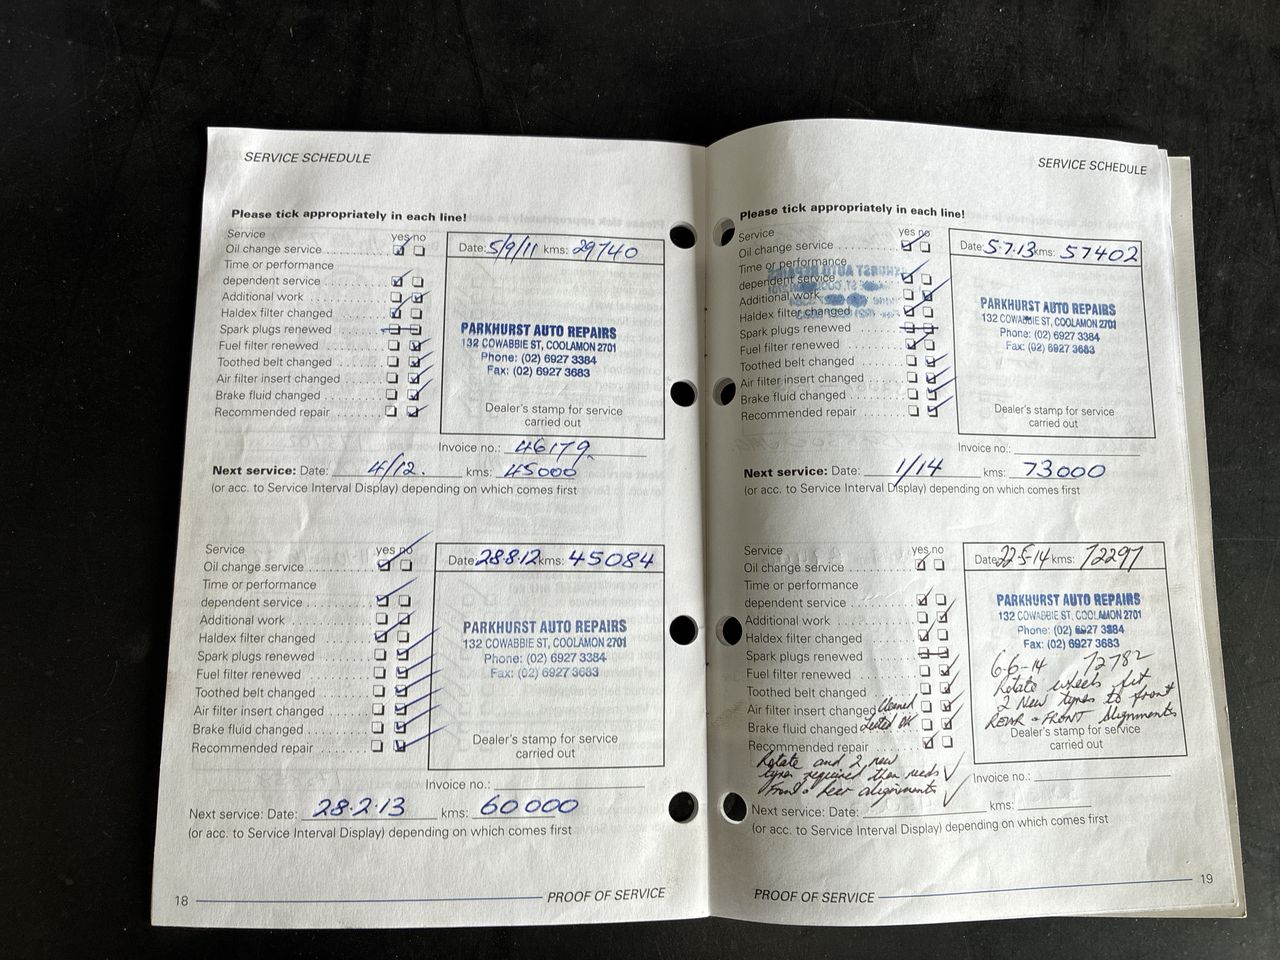 SERVICE SCHEDULE
Please tick appropriately in each line!
Service yes no
Oil change service
Time or performance
dependent service
Additional work
Haldex filter changed
Spark plugs renewed
Fuel filter renewed
Toothed belt changed
Air filter insert changed
Brake fluid changed
Recommended repair
Date: 5/9/11 kms: 29740
PARKHURST AUTO REPAIRS
132 COWABBIE ST, COOLAMON 2701
Phone: (02) 6927 3384
Fax: (02) 6927 3683
Dealer's stamp for service
carried out
Invoice no.: 46179
Next service: Date: 4/12. kms: 45000
(or acc. to Service Interval Display) depending on which comes first
Service yes no
Oil change service
Time or performance
dependent service
Additional work
Haldex filter changed
Spark plugs renewed
Fuel filter renewed
Toothed belt changed
Air filter insert changed
Brake fluid changed
Recommended repair
Date: 28.8.12 kms: 45084
PARKHURST AUTO REPAIRS
132 COWABBIE ST, COOLAMON 2701
Phone: (02) 6927 3384
Fax: (02) 6927 3683
Dealer's stamp for service
carried out
Invoice no.:
Next service: Date: 28.2.13 kms: 60000
(or acc. to Service Interval Display) depending on which comes first
18 PROOF OF SERVICE
SERVICE SCHEDULE
Please tick appropriately in each line!
Service yes no
Oil change service
Time or performance
dependent service
Additional work
Haldex filter changed
Spark plugs renewed
Fuel filter renewed
Toothed belt changed
Air filter insert changed
Brake fluid changed
Recommended repair
Date: 5.7.13 kms: 57402
PARKHURST AUTO REPAIRS
132 COWABBIE ST, COOLAMON 2701
Phone: (02) 6927 3384
Fax: (02) 6927 3683
Dealer's stamp for service
carried out
Invoice no.:
Next service: Date: 1/14 kms: 73000
(or acc. to Service Interval Display) depending on which comes first
Service yes no
Oil change service
Time or performance
dependent service
Additional work
Haldex filter changed
Spark plugs renewed
Fuel filter renewed
Toothed belt changed
Air filter insert changed Cleaned
Brake fluid changed Tested OK
Recommended repair
Rotate and 2 new
tyres required then needs
Front & Rear alignments
Date: 22-5-14 kms: 72297
PARKHURST AUTO REPAIRS
132 COWABBIE ST, COOLAMON 2701
Phone: (02) 6927 3384
Fax: (02) 6927 3683
6-6-14 72782
Rotate wheels fit
2 New tyres to front
REAR & FRONT Alignments
Dealer's stamp for service
carried out
Invoice no.:
Next service: Date: kms:
(or acc. to Service Interval Display) depending on which comes first
PROOF OF SERVICE 19